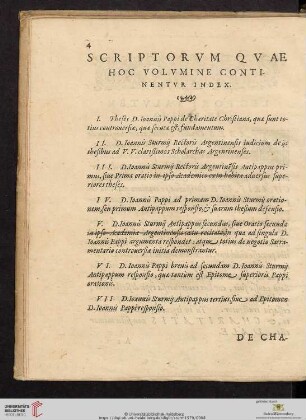 4
SCRIPTORVM QVAE
HOC VOLVMINE CONTI-
NENTVR INDEX.
I. Theses D. Ioannis Pappi de Charitate Christiana, quæ sunt to-
tius controuersiæ, quæ secuta est, fundamentum.
II. D. Ioannis Sturmij Rectoris Argentinensis Iudicium de ijs
thesibus ad V. V. clarissimos Scholarchas Argentinenses.
III. D. Ioannis Sturmij Rectoris Argentinensis Antipappus pri-
mus, siue Prima oratio in ipso Academico cum habitus aduersus supe-
riores theses.
IV. D. Ioannis Pappi ad primam D. Ioannis Sturmij oratio-
nem, seu primum Antipappum responsio, & suarum thesium defensio.
V. D. Ioannis Sturmij Antipappus secundus, siue Oratio secunda
in ipsa Academia Argentinensi
qua ad singula D.
Ioannis Pappi argumenta respondet: atque totius de negotio Sacra-
mentario controuersiæ initia demonstrantur.
VI. D. Ioannis Pappi breuis ad secundam D. Ioannis Sturmij
Antipappum responsio, quæ tantum est Epitome superioris Pappi
orationis.
VII. D. Ioannis Sturmij Antipappus tertius, siue ad Epitomen
D. Ioannis Pappi responsio.
DE CHA-
UNIVERSITÄTS-BIBLIOTHEK HEIDELBERG
© Universitätsbibliothek Heidelberg